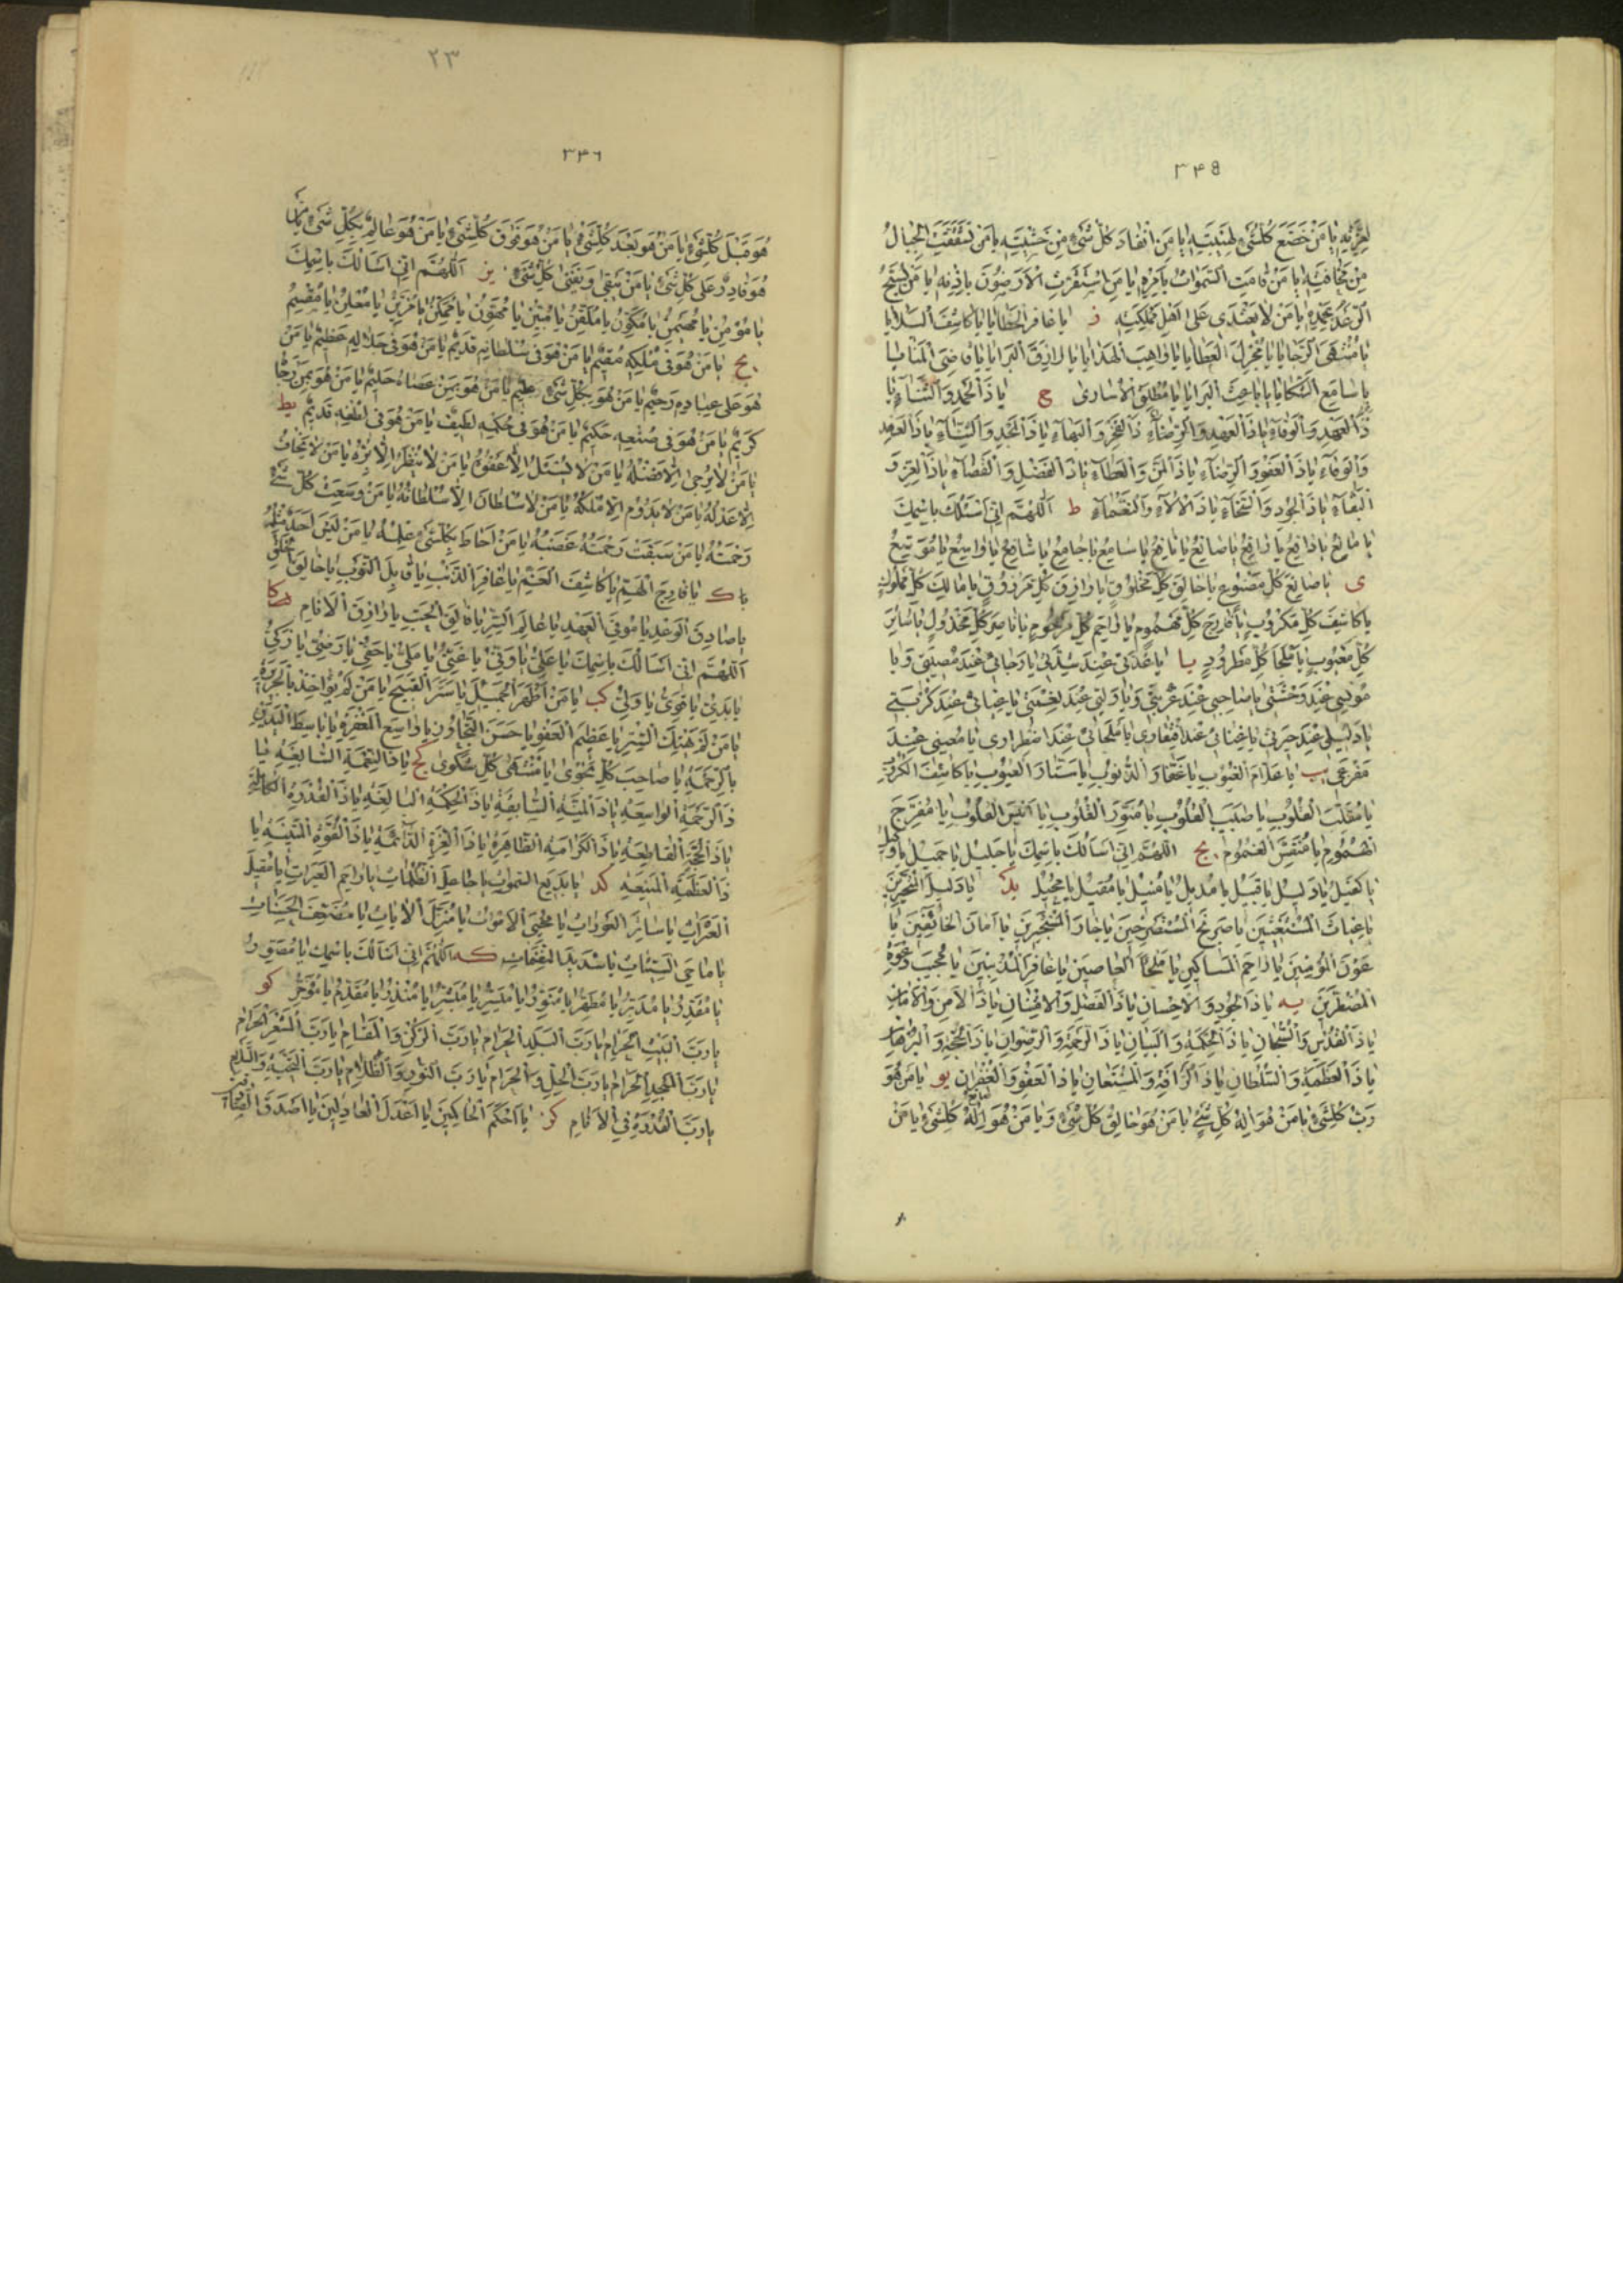 ٣۴۵
لِعِزَّتِهِ يٰا مَنْ خَضَعَ كُلُّشَيْءٍ لِهَيْبَتِهِ يٰا مَنِ انْقٰادَ كُلُّ شَيْءٍ مِنْ خَشْيَتِهِ يٰا مَنْ تَشَقَّقَتِ الْجِبٰالُ
مِنْ مَخٰافَتِهِ يٰا مَنْ قٰامَتِ السَّمٰوٰاتُ بِاَمْرِهِ يٰا مَنِ اسْتَقَرَّتِ الْاَرَضُونَ بِاِذْنِهِ يٰا مَنْ يُسَبِّحُ
الرَّعْدُ بِحَمْدِهِ يٰا مَنْ لٰا يَعْتَدى عَلىٰ اَهْلِ مَمْلَكَتِهِ ز يٰا غٰافِرَ الْخَطٰايٰا يٰا كٰاشِفَ الْبَلٰايٰا
يٰا مُنْتَهَى الرَّجٰايٰا يٰا مُجْزِلَ الْعَطٰايٰا يٰا وٰاهِبَ الْهَدٰايٰا يٰا رٰازِقَ الْبَرٰايٰا يٰا قٰاضِىَ الْمَنٰايٰا
يٰا سٰامِعَ الشَّكٰايٰا يٰا بٰاعِثَ الْبَرٰايٰا يٰا مُطْلِقَ الْاُسٰارى ح يٰا ذَا الْحَمْدِ وَالثَّنٰآءِ يٰا
ذَا الْعَهْدِ وَالْوَفٰآءِ يٰا ذَا الْعَفْوِ وَالرِّضٰآءِ ذَا الْفَخْرِ وَالْبَهٰآءِ يٰا ذَا الْمَجْدِ وَالسَّنٰآءِ يٰا ذَا الْعَهْدِ
وَالْوَفٰآءِ يٰا ذَا الْعَفْوِ وَالرِّضٰآءِ يٰا ذَا الْمَنِّ وَالْعَطٰآءِ يٰا ذَا الْفَضْلِ وَالْقَضٰآءِ يٰا ذَا الْعِزِّ وَ
الْبَقٰآءِ يٰا ذَا الْجُودِ وَالسَّخٰآءِ يٰا ذَا الْاٰلٰآءِ وَالنَّعْمٰآءِ ط اَللّٰهُمَّ اِنّى اَسْئَلُكَ بِاسْمِكَ
يٰا مٰانِعُ يٰا دٰافِعُ يٰا رٰافِعُ يٰا صٰانِعُ يٰا نٰافِعُ يٰا سٰامِعُ يٰا جٰامِعُ يٰا شٰافِعُ يٰا وٰاسِعُ يٰا مُوَسِّعُ
ى يٰا صٰانِعَ كُلِّ مَصْنُوعٍ يٰا خٰالِقَ كُلِّ مَخْلُوقٍ يٰا رٰازِقَ كُلِّ مَرْزُوقٍ يٰا مٰالِكَ كُلِّ مَمْلُوكٍ
يٰا كٰاشِفَ كُلِّ مَكْرُوبٍ يٰا فٰارِجَ كُلِّ مَهْمُومٍ يٰا رٰاحِمَ كُلِّ مَرْحُومٍ يٰا نٰاصِرَ كُلِّ مَخْذُولٍ يٰا سٰاتِرَ
كُلِّ مَعْيُوبٍ يٰا مَلْجَأَ كُلِّ مَطْرُودٍ يا يٰا عُدَّتى عِنْدَ شِدَّتى يٰا رَجٰائى عِنْدَ مُصيبَتى وَيٰا
مُونِسى عِنْدَ وَحْشَتى يٰا صٰاحِبى عِنْدَ غُرْبَتى وَيٰا وَلِيّى عِنْدَ نِعْمَتى يٰا غِيٰاثى عِنْدَ كُرْبَتى
يٰا دَليلى عِنْدَ حَيْرَتى يٰا غِنٰائى عِنْدَ افْتِقٰارى يٰا مَلْجَائى عِنْدَ اضْطِرٰارى يٰا مُعينى عِنْدَ
مَفْزَعى يب يٰا عَلّٰامَ الْغُيُوبِ يٰا غَفّٰارَ الذُّنُوبِ يٰا سَتّٰارَ الْعُيُوبِ يٰا كٰاشِفَ الْكُرُوبِ
يٰا مُقَلِّبَ الْقُلُوبِ يٰا طَبيبَ الْقُلُوبِ يٰا مُنَوِّرَ الْقُلُوبِ يٰا اَنيسَ الْقُلُوبِ يٰا مُفَرِّجَ
الْهُمُومِ يٰا مُنَفِّسَ الْغُمُومِ يج اَللّٰهُمَّ اِنّى اَسَالُكَ بِاسْمِكَ يٰا جَليلُ يٰا جَميلُ يٰا وَكيلُ
يٰا كَفيلُ يٰا دَليلُ يٰا قَبيلُ يٰا مُديلُ يٰا مُنيلُ يٰا مُقيلُ يٰا مُحيلُ يد يٰا دَليلَ الْمُتَحَيِّرينَ
يٰا غِيٰاثَ الْمُسْتَغيثينَ يٰا صَريخَ الْمُسْتَصْرِخينَ يٰا جٰارَ الْمُسْتَجيرينَ يٰا اَمٰانَ الْخٰائِفينَ يٰا
عَوْنَ الْمُؤْمِنينَ يٰا رٰاحِمَ الْمَسٰاكينِ يٰا مَلْجَأَ الْعٰاصينَ يٰا غٰافِرَ الْمُذْنِبينَ يٰا مُجيبَ دَعْوَةِ
الْمُضْطَرّينَ يه يٰا ذَا الْجُودِ وَالْاِحْسٰانِ يٰا ذَا الْفَضْلِ وَالْاِمْتِنٰانِ يٰا ذَا الْاَمْنِ وَالْاَمٰانِ
يٰا ذَا الْقُدْسِ وَالسُّبْحٰانِ يٰا ذَا الْحِكْمَةِ وَالْبَيٰانِ يٰا ذَا الرَّحْمَةِ وَالرِّضْوٰانِ يٰا ذَا الْحُجَّةِ وَالْبُرْهٰانِ
يٰا ذَا الْعَظَمَةِ وَالسُّلْطٰانِ يٰا ذَا الرَّأْفَةِ وَالْمُسْتَعٰانِ يٰا ذَا الْعَفْوِ وَالْغُفْرٰانِ يو يٰا مَنْ هُوَ
رَبُّ كُلِّشَيْءٍ يٰا مَنْ هُوَ اِلٰهُ كُلِّ شَيْءٍ يٰا مَنْ هُوَ خٰالِقُ كُلِّ شَيْءٍ وَيٰا مَنْ هُوَ صانع كُلِّشَيْءٍ يٰا مَنْ
٢٣
٣۴٦
هُوَ قَبْلَ كُلِّشَيْءٍ يٰا مَنْ هُوَ بَعْدَ كُلِّشَيْءٍ يٰا مَنْ هُوَ فَوْقَ كُلِّشَيْءٍ يٰا مَنْ هُوَ عٰالِمٌ بِكُلِّ شَيْءٍ يٰا مَنْ
هُوَ قٰادِرٌ عَلىٰ كُلِّ شَيْءٍ يٰا مَنْ يَبْقىٰ وَيَفْنىٰ كُلُّ شَيْءٍ يز اَللّٰهُمَّ اِنّى اَسَالُكَ بِاسْمِكَ
يٰا مُؤْمِنُ يٰا مُهَيْمِنُ يٰا مُكَوِّنُ يٰا مُلَقِّنُ يٰا مُبَيِّنُ يٰا مُهَوِّنُ يٰا مُمَكِّنُ يٰا مُزَيِّنُ يٰا مُعْلِنُ يٰا مُقَسِّمُ
يح يٰا مَنْ هُوَ فى مُلْكِهِ مُقيمٌ يٰا مَنْ هُوَ فى سُلْطٰانِهِ قَديمٌ يٰا مَنْ هُوَ فى جَلٰالِهِ عَظيمٌ يٰا مَنْ
هُوَ عَلىٰ عِبٰادِهِ رَحيمٌ يٰا مَنْ هُوَ بِكُلِّ شَيْءٍ عَليمٌ يٰا مَنْ هُوَ بِمَنْ عَصٰاهُ حَليمٌ يٰا مَنْ هُوَ بِمَنْ رَجٰاهُ
كَريمٌ يٰا مَنْ هُوَ فى صُنْعِهِ حَكيمٌ يٰا مَنْ هُوَ فى حِكْمَتِهِ لَطيفٌ يٰا مَنْ هُوَ فى لُطْفِهِ قَديمٌ يط
يٰا مَنْ لٰا يُرْجىٰ اِلّٰا فَضْلُهُ يٰا مَنْ لٰا يُسْئَلُ اِلّٰا عَفْوُهُ يٰا مَنْ لٰا يُنْظَرُ اِلّٰا بِرُّهُ يٰا مَنْ لٰا يُخٰافُ
اِلّٰا عَدْلُهُ يٰا مَنْ لٰا يَدُومُ اِلّٰا مُلْكُهُ يٰا مَنْ لٰا سُلْطٰانَ اِلّٰا سُلْطٰانُهُ يٰا مَنْ وَسِعَتْ كُلَّ شَيْءٍ
رَحْمَتُهُ يٰا مَنْ سَبَقَتْ رَحْمَتُهُ غَضَبَهُ يٰا مَنْ اَحٰاطَ بِكُلِّشَيْءٍ عِلْمُهُ يٰا مَنْ لَيْسَ اَحَدٌ مِثْلَهُ
ك يٰا فٰارِجَ الْهَمِّ يٰا كٰاشِفَ الْغَمِّ يٰا غٰافِرَ الذَّنْبِ يٰا قٰابِلَ التَّوْبِ يٰا خٰالِقَ الْخَلْقِ
يٰا صٰادِقَ الْوَعْدِ يٰا مُوفِىَ الْعَهْدِ يٰا عٰالِمَ السِّرِّ يٰا فٰالِقَ الْحَبِّ يٰا رٰازِقَ الْاَنٰامِ كا
اَللّٰهُمَّ اِنّى اَسَالُكَ بِاسْمِكَ يٰا عَلِىُّ يٰا وَفِىُّ يٰا غَنِىُّ يٰا مَلِىُّ يٰا حَفِىُّ يٰا رَضِىُّ يٰا زَكِىُّ
يٰا بَدِىُّ يٰا قَوِىُّ يٰا وَلِىُّ كب يٰا مَنْ اَظْهَرَ الْجَميلَ يٰا سَتَرَ الْقَبيحَ يٰا مَنْ لَمْ يُؤٰاخِذْ بِالْجَريرَةِ
يٰا مَنْ لَمْ يَهْتِكِ السِّتْرَ يٰا عَظيمَ الْعَفْوِ يٰا حَسَنَ التَّجٰاوُزِ يٰا وٰاسِعَ الْمَغْفِرَةِ يٰا بٰاسِطَ الْيَدَيْنِ
بِالرَّحْمَةِ يٰا صٰاحِبَ كُلِّ نَجْوىٰ يٰا مُنْتَهىٰ كُلِّ شَكْوىٰ كج يٰا ذَا النِّعْمَةِ السّٰابِغَةِ يٰا
ذَا الرَّحْمَةِ الْوٰاسِعَةِ يٰا ذَا الْمِنَّةِ السّٰابِقَةِ يٰا ذَا الْحِكْمَةِ الْبٰالِغَةِ يٰا ذَا الْقُدْرَةِ الْكٰامِلَةِ
يٰا ذَا الْحُجَّةِ الْقٰاطِعَةِ يٰا ذَا الْكَرٰامَةِ الظّٰاهِرَةِ يٰا ذَا الْعِزَّةِ الدّٰآئِمَةِ يٰا ذَا الْقُوَّةِ الْمَتينَةِ يٰا
ذَا الْعَظَمَةِ الْمَنيعَةِ كد يٰا بَديعَ السَّمٰوٰاتِ يٰا جٰاعِلَ الظُّلُمٰاتِ يٰا رٰاحِمَ الْعَبَرٰاتِ يٰا مُقيلَ
الْعَثَرٰاتِ يٰا سٰاتِرَ الْعَوْرٰاتِ يٰا مُحْيِىَ الْاَمْوٰاتِ يٰا مُنْزِلَ الْاٰيٰاتِ يٰا مُضَعِّفَ الْحَسَنٰاتِ
يٰا مٰاحِىَ السَّيِّئٰاتِ يٰا شَديدَ النَّقِمٰاتِ كه اَللّٰهُمَّ اِنّى اَسَالُكَ بِاسْمِكَ يٰا مُصَوِّرُ
يٰا مُقَدِّرُ يٰا مُدَبِّرُ يٰا مُطَهِّرُ يٰا مُنَوِّرُ يٰا مُيَسِّرُ يٰا مُبَشِّرُ يٰا مُنْذِرُ يٰا مُقَدِّمُ يٰا مُؤَخِّرُ كو
يٰا رَبَّ الْبَيْتِ الْحَرٰامِ يٰا رَبَّ الْبَلَدِ الْحَرٰامِ يٰا رَبَّ الرُّكْنِ وَالْمَقٰامِ يٰا رَبَّ الْمَشْعَرِ الْحَرٰامِ
يٰا رَبَّ الْمَسْجِدِ الْحَرٰامِ يٰا رَبَّ الْحِلِّ وَالْحَرٰامِ يٰا رَبَّ النُّورِ وَالظَّلٰامِ يٰا رَبَّ التَّحِيَّةِ وَالسَّلٰامِ
يٰا رَبَّ الْقُدْرَةِ فِى الْاَنٰامِ كز يٰا اَحْكَمَ الْحٰاكِمينَ يٰا اَعْدَلَ الْعٰادِلينَ يٰا اَصْدَقَ الصّٰادِقينَ